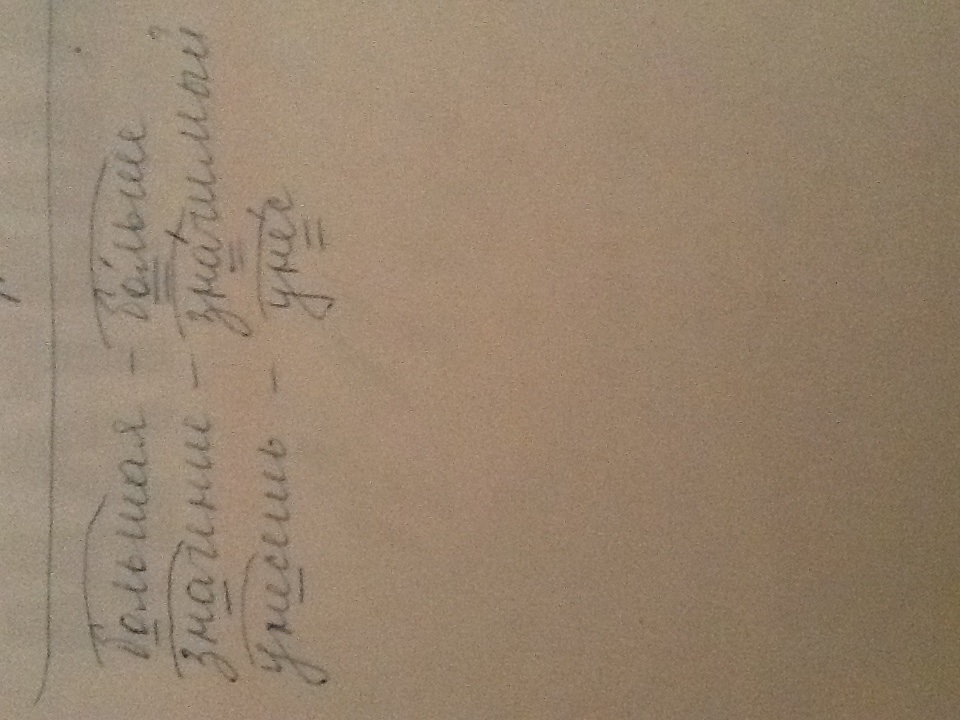 большая - бо́льше
значение - зна́чимый
унесешь - унёс